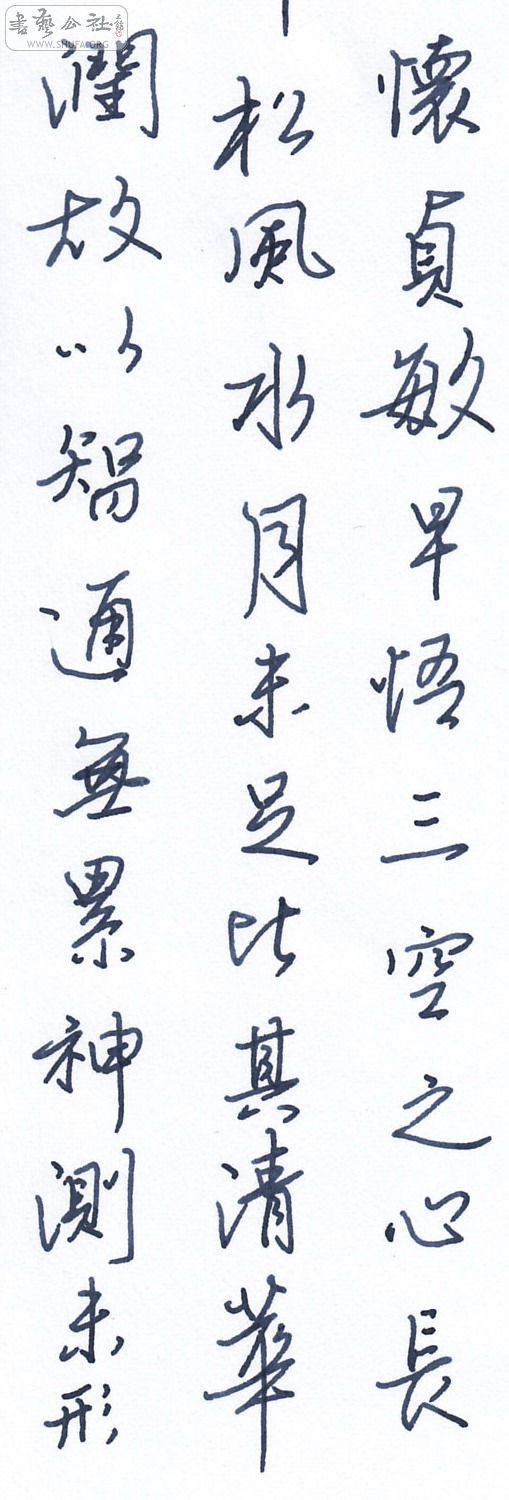 懷貞敏早悟三空之心長
松風水月未足比其清華
潤故以智通無累神測未形
書藝公社
WWW.SHUFA.ORG